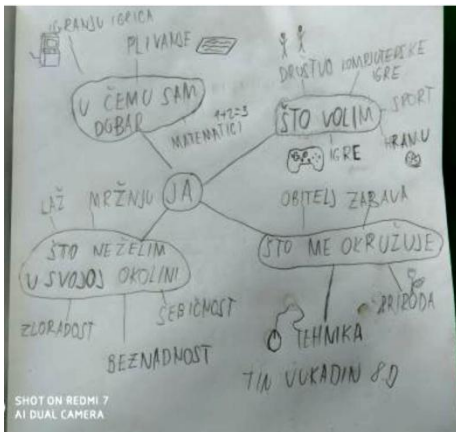 IGRANJU IGRICA
PLIVANJE
U ČEMU SAM
DOBAR
1+2=3
MATEMATICI
DRUŠTVO KOMPJUTERSKE
IGRE
ŠTO VOLIM
SPORT
HRANU
IGRE
JA
LAŽ
MRŽNJU
ŠTO NE ŽELIM
U SVOJOJ OKOLINI
ZLORADOST
BEZNADNOST
SEBIČNOST
OBITELJ ZABAVA
ŠTO ME OKRUŽUJE
PRIRODA
TEHNIKA
TIN VUKADIN 8.D
SHOT ON REDMI 7
AI DUAL CAMERA